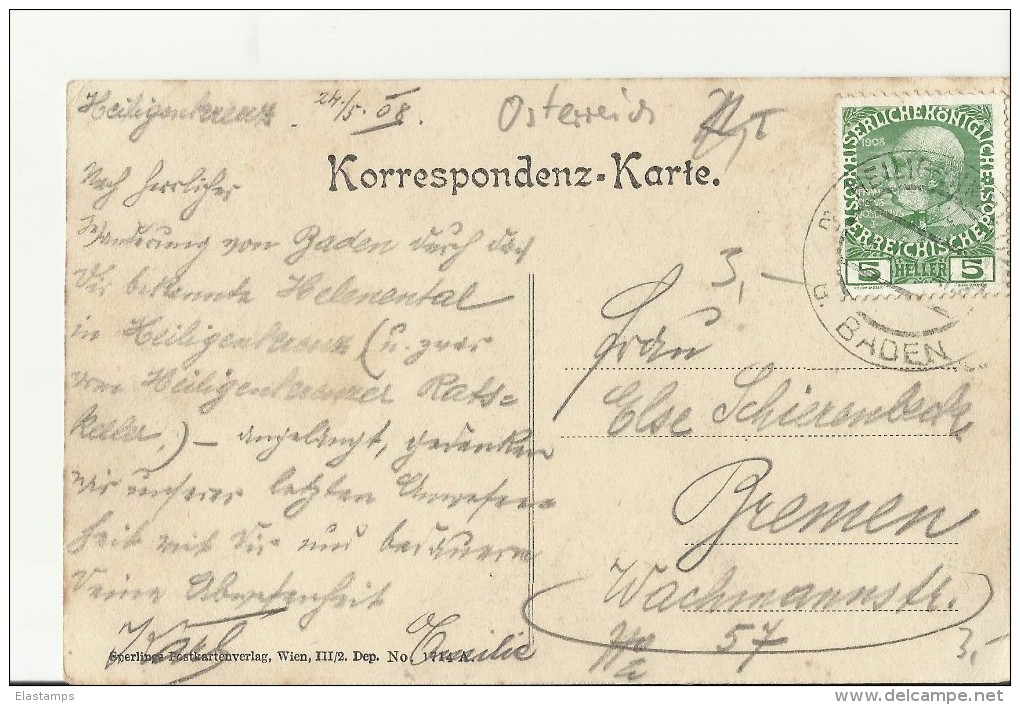 Heiligenkreuz 24./5. 08.
Osterreich
Korrespondenz-Karte.
Nach herrlicher
Wanderung von Baden durch das
Dir bekannte Helenental
in Heiligenkreuz (u. zwar
vom Heiligenkreuzer Rats=
keller,) – angelangt, gedenken
wir unserer letzten Anwesen
heit mit Dir und bedauern
Deine Abwesenheit
Cecilie
KAISERLICHE KÖNIGLICHE
ÖSTERREICHISCHE POST
1908
5 HELLER 5
BADEN
3,–
Frau
Else Schierenbeck
Bremen
Wachmannstr.
57
3,–
Sperlings Postkartenverlag, Wien, III/2. Dep. No. 1714 A.
Elastamps
www.delcampe.net